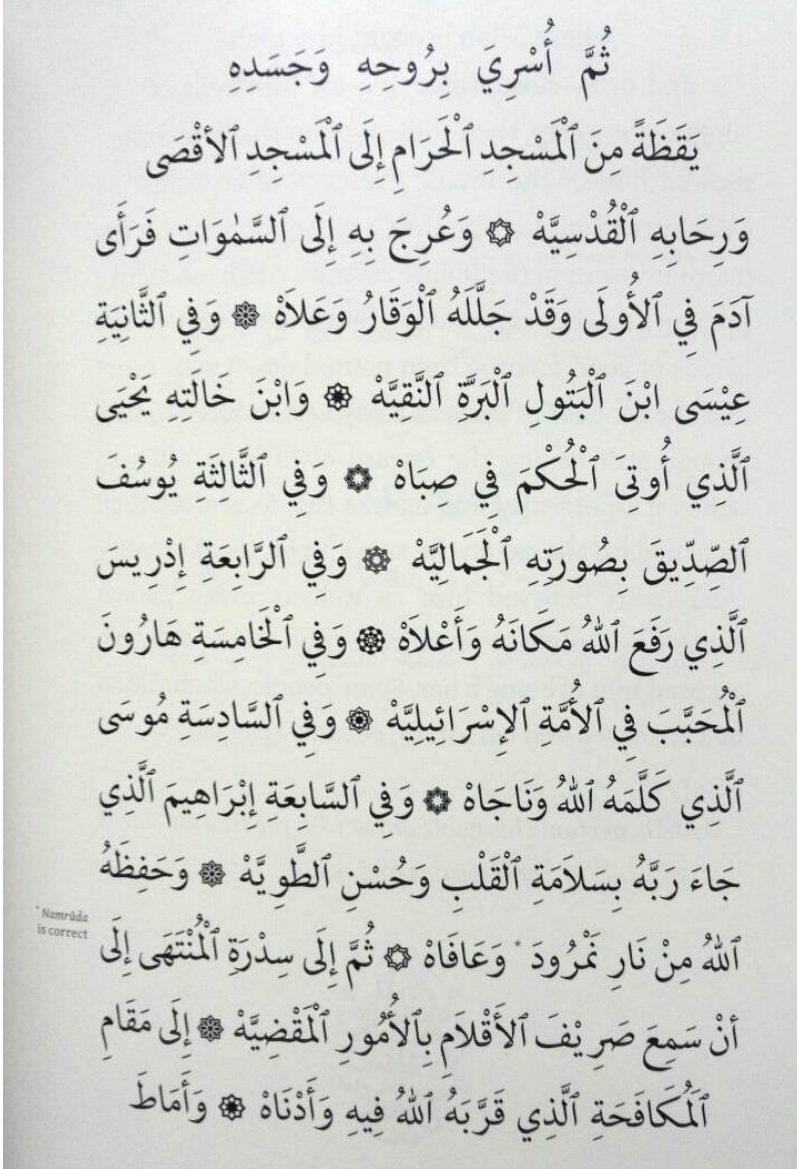 ثُمَّ أُسْرِيَ بِرُوحِهِ وَجَسَدِهِ
يَقَظَةً مِنَ ٱلْمَسْجِدِ ٱلْحَرَامِ إِلَى ٱلْمَسْجِدِ ٱلأَقْصَى
وَرِحَابِهِ ٱلْقُدْسِيَّهْ ۞ وَعُرِجَ بِهِ إِلَى ٱلسَّمٰوَاتِ فَرَأَى
آدَمَ فِي ٱلأُولَى وَقَدْ جَلَّلَهُ ٱلْوَقَارُ وَعَلاَهْ ۞ وَفِي ٱلثَّانِيَةِ
عِيْسَى ابْنَ ٱلْبَتُولِ ٱلْبَرَّةِ ٱلنَّقِيَّهْ ۞ وَابْنَ خَالَتِهِ يَحْيَى
ٱلَّذِي أُوتِيَ ٱلْحُكْمَ فِي صِبَاهْ ۞ وَفِي ٱلثَّالِثَةِ يُوسُفَ
ٱلصِّدِّيقَ بِصُورَتِهِ ٱلْجَمَالِيَّهْ ۞ وَفِي ٱلرَّابِعَةِ إِدْرِيسَ
ٱلَّذِي رَفَعَ ٱللهُ مَكَانَهُ وَأَعْلاَهْ ۞ وَفِي ٱلْخَامِسَةِ هَارُونَ
ٱلْمُحَبَّبَ فِي ٱلأُمَّةِ ٱلإِسْرَائِيلِيَّهْ ۞ وَفِي ٱلسَّادِسَةِ مُوسَى
ٱلَّذِي كَلَّمَهُ ٱللهُ وَنَاجَاهْ ۞ وَفِي ٱلسَّابِعَةِ إِبْرَاهِيمَ ٱلَّذِي
جَاءَ رَبَّهُ بِسَلاَمَةِ ٱلْقَلْبِ وَحُسْنِ ٱلطَّوِيَّهْ ۞ وَحَفِظَهُ
ٱللهُ مِنْ نَارِ نَمْرُودَ * وَعَافَاهْ ۞ ثُمَّ إِلَى سِدْرَةِ ٱلْمُنْتَهَى إِلَى
* Namrūda
is correct
أَنْ سَمِعَ صَرِيْفَ ٱلأَقْلاَمِ بِٱلأُمُورِ ٱلْمَقْضِيَّهْ ۞ إِلَى مَقَامِ
ٱلْمُكَافَحَةِ ٱلَّذِي قَرَّبَهُ ٱللهُ فِيهِ وَأَدْنَاهْ ۞ وَأَمَاطَ